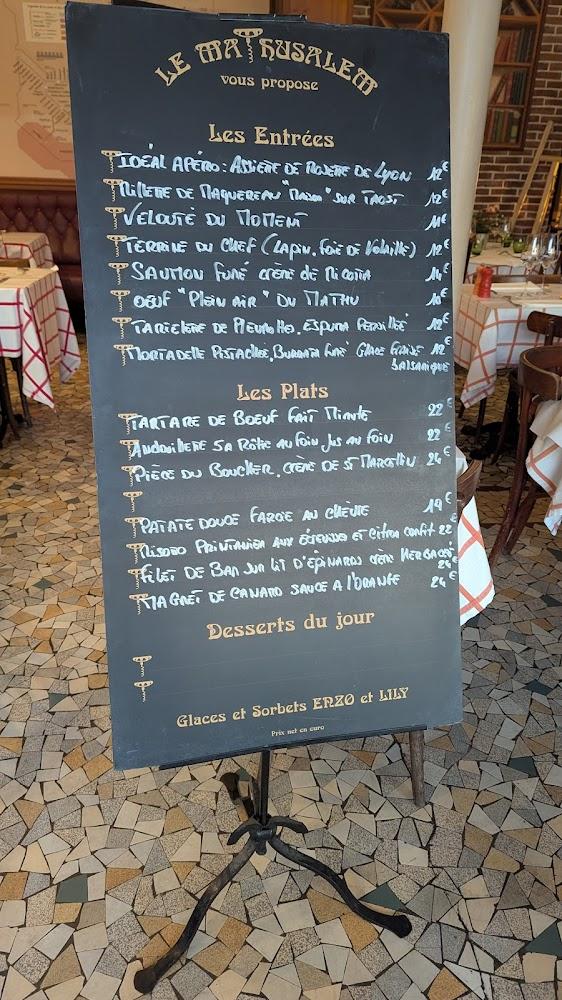 LE MATHUSALEM
vous propose
Les Entrées
IDÉAL APÉRO: ASSIETTE DE ROSETTE DE LYON 12€
RILLETTE DE MAQUEREAU "MAISON" SUR TOAST 12€
VELOUTÉ DU MOMENT 11€
TERRINE DU CHEF (LAPIN, FOIE DE VOLAILLE) 12€
SAUMON FUMÉ CRÈME DE RICOTTA 14€
OEUF "PLEIN AIR" DU MATHU 10€
DE ESPUMA PERSILLÉE 12€
MORTADELLE PISTACHÉE, BURRATA FUMÉ GLACE FRAISE 12€
BALSAMIQUE
Les Plats
TARTARE DE BOEUF FAIT MINUTE 22€
ANDOUILLETTE 5A RÔTIE AU FOIN JUS AU FOIN 22€
PIÈCE DU BOUCHER, CRÈME DE ST MARCELLIN 24€
PATATE DOUCE FARCIE AU CHÈVRE 19€
RISOTTO PRINTANIER AUX ET CITRON CONFIT 22€
FILET DE BAR SUR LIT D'ÉPINARDS CRÈME
24€
MAGRET DE CANARD SAUCE A L'ORANGE 24€
Desserts du jour
Glaces et Sorbets ENZO et LILY
Prix net en euro